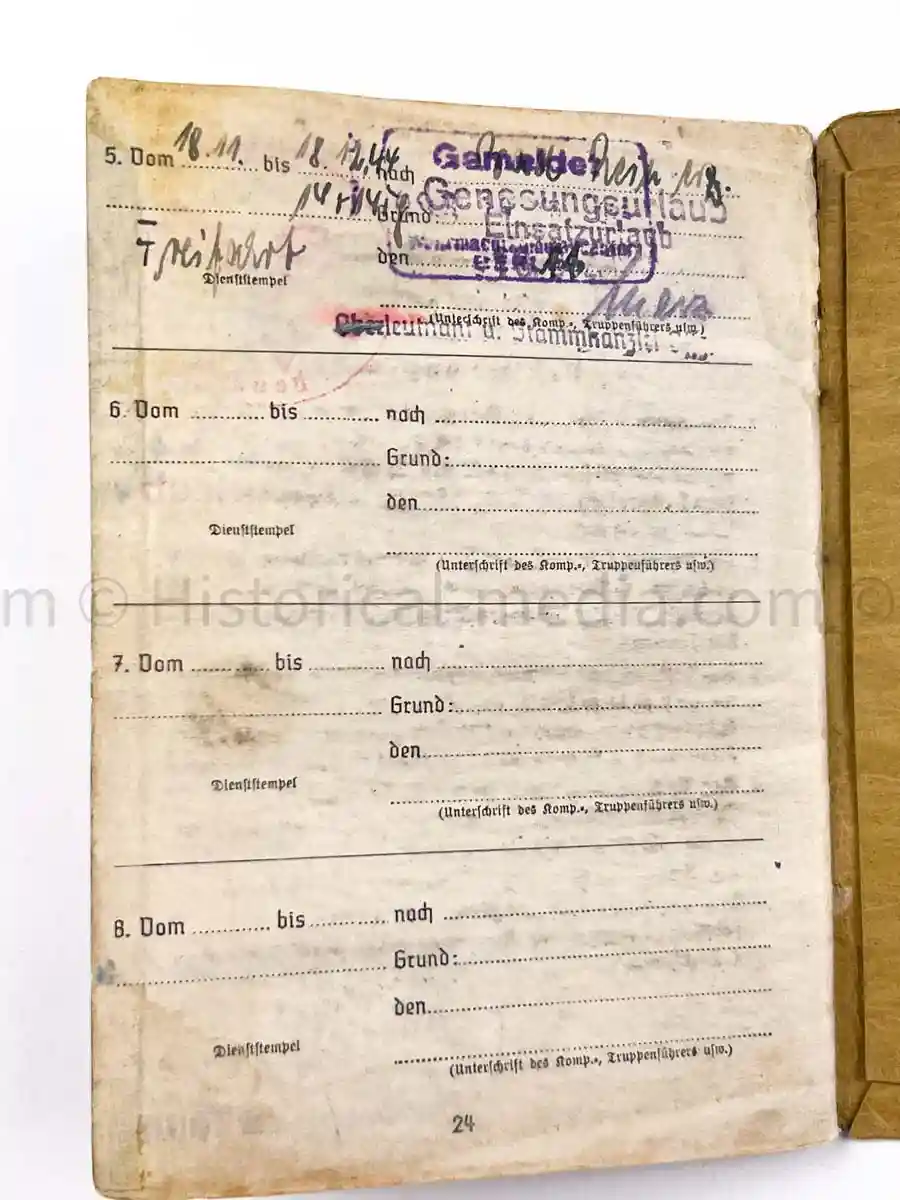 5. Vom 18.11. bis 18.12.44 nach
Gemeldet
Genesungsurlaub
14 + 14 Grund:
Einsatzurlaub
den
Dienststempel
(Unterschrift des Komp.=, Truppenführers usw.)
Oberleutnant u.
6. Vom ............ bis ............ nach
Grund:
den
Dienststempel
(Unterschrift des Komp.=, Truppenführers usw.)
m © Historical-media.com ©
7. Vom ............ bis ............ nach
Grund:
den
Dienststempel
(Unterschrift des Komp.=, Truppenführers usw.)
8. Vom ............ bis ............ nach
Grund:
den
Dienststempel
(Unterschrift des Komp.=, Truppenführers usw.)
24